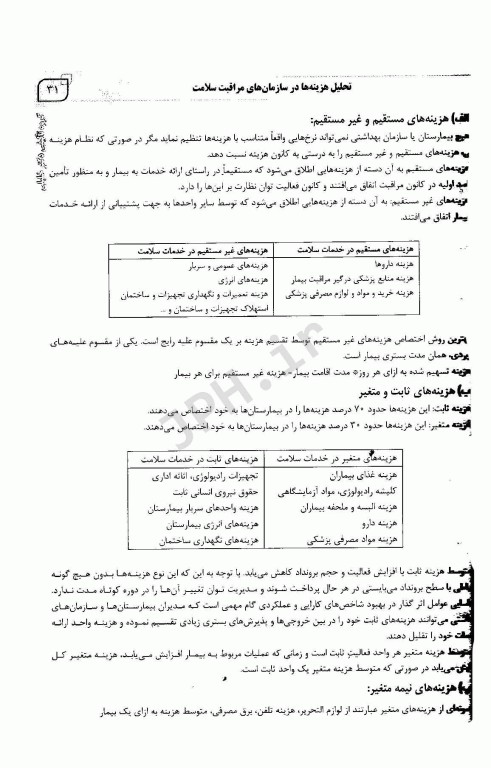 تحلیل هزینه‌ها در سازمان‌های مراقبت سلامت
۳۱
الف) هزینه‌های مستقیم و غیر مستقیم:
هیچ بیمارستان یا سازمان بهداشتی نمی‌تواند نرخ‌هایی واقعاً متناسب با هزینه‌ها تنظیم نماید مگر در صورتی که نظام هزینه
هزینه‌های مستقیم و غیر مستقیم را به درستی به کانون هزینه نسبت دهد.
هزینه‌های مستقیم به آن دسته از هزینه‌هایی اطلاق می‌شود که مستقیماً در راستای ارائه خدمات به بیمار و به منظور تأمین
اولیه در کانون مراقبت اتفاق می‌افتند و کانون فعالیت توان نظارت بر این‌ها را دارد.
هزینه‌های غیر مستقیم: به آن دسته از هزینه‌هایی اطلاق می‌شود که توسط سایر واحدها به جهت پشتیبانی از ارائه خدمات
بیمار اتفاق می‌افتند.
هزینه‌های مستقیم در خدمات سلامت
هزینه‌های غیر مستقیم در خدمات سلامت
هزینه داروها
هزینه منابع پزشکی درگیر مراقبت بیمار
هزینه خرید و مواد و لوازم مصرفی پزشکی
هزینه‌های عمومی و سربار
هزینه‌های انرژی
هزینه تعمیرات و نگهداری تجهیزات و ساختمان
استهلاک تجهیزات و ساختمان و ...
روش اختصاص هزینه‌های غیر مستقیم توسط تقسیم هزینه بر یک مقسوم علیه رایج است. یکی از مقسوم علیه‌های
همان مدت بستری بیمار است.
هزینه تسهیم شده به ازای هر روز* مدت اقامت بیمار= هزینه غیر مستقیم برای هر بیمار
ب) هزینه‌های ثابت و متغیر
هزینه ثابت: این هزینه‌ها حدود ۷۰ درصد هزینه‌ها را در بیمارستان‌ها به خود اختصاص می‌دهند.
هزینه متغیر: این هزینه‌ها حدود ۳۰ درصد هزینه‌ها را در بیمارستان‌ها به خود اختصاص می‌دهند.
هزینه‌های متغیر در خدمات سلامت
هزینه‌های ثابت در خدمات سلامت
هزینه غذای بیماران
کلیشه رادیولوژی، مواد آزمایشگاهی
هزینه البسه و ملحفه بیماران
هزینه دارو
هزینه مواد مصرفی پزشکی
تجهیزات رادیولوژی، اثاثه اداری
حقوق نیروی انسانی ثابت
هزینه واحدهای سربار بیمارستان
هزینه‌های انرژی بیمارستان
هزینه‌های نگهداری ساختمان
متوسط هزینه ثابت با افزایش فعالیت و حجم برونداد کاهش می‌یابد. با توجه به این که این نوع هزینه‌ها بدون هیچ گونه
با سطح برونداد می‌بایستی در هر حال پرداخت شوند و مدیریت توان تغییر آن‌ها را در دوره کوتاه مدت ندارد.
عوامل اثر گذار در بهبود شاخص‌های کارایی و عملکردی گام مهمی است که مدیران بیمارستان‌ها و سازمان‌های
می‌توانند هزینه‌های ثابت خود را در بین خروجی‌ها و پذیرش‌های بستری زیادی تقسیم نموده و هزینه واحد ارائه
خود را تقلیل دهند.
متوسط هزینه متغیر هر واحد فعالیت ثابت است و زمانی که عملیات مربوط به بیمار افزایش می‌یابد، هزینه متغیر کل
می‌یابد در صورتی که متوسط هزینه متغیر یک واحد ثابت است.
هزینه‌های نیمه متغیر:
از هزینه‌های متغیر عبارتند از لوازم التحریر، هزینه تلفن، برق مصرفی، متوسط هزینه به ازای یک بیمار
JPH.ir